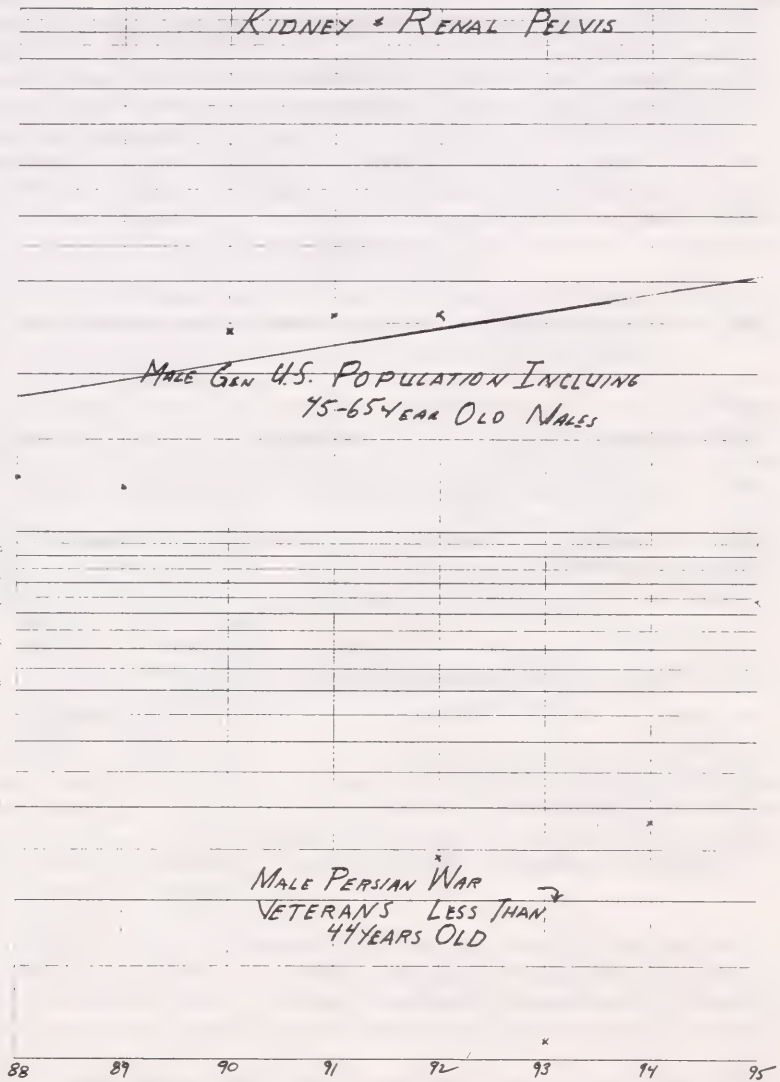 KIDNEY & RENAL PELVIS
MALE GEN U.S. POPULATION INCLUING
45-65 YEAR OLD MALES
MALE PERSIAN WAR
VETERANS LESS THAN
44 YEARS OLD
88 89 90 91 92 93 94 95